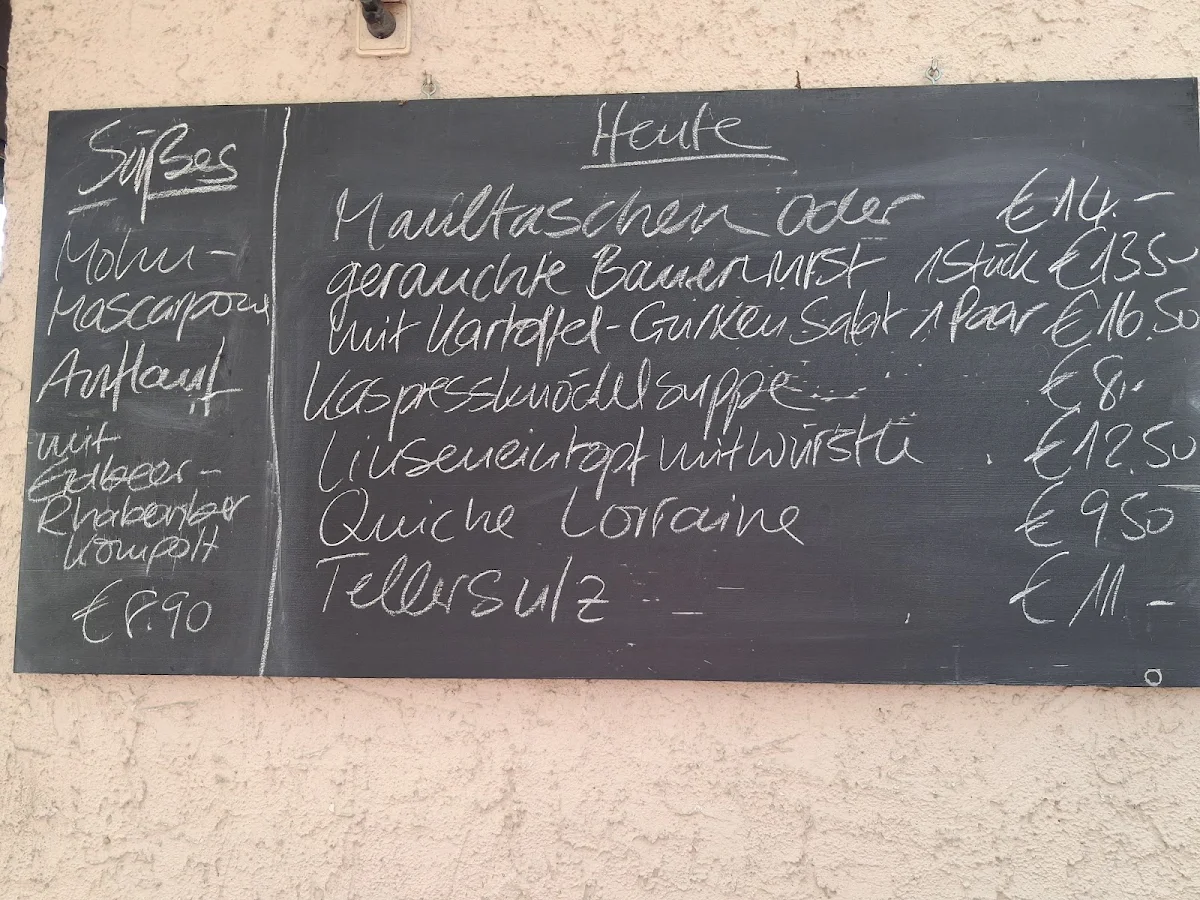 Süßes
Mohn-
Mascarpone
Auflauf
mit
Erdbeer-
Rhabarber
Kompott
€8.90
Heute
Maultaschen oder €14.-
gerauchte Bauernwurst 1 Stück €13.50
mit Kartoffel-Gurken Salat 1 Paar €16.50
Kaspressknödelsuppe €8.-
Linseneintopf mit Würstle €12.50
Quiche Lorraine €9.50
Tellersulz €11.-